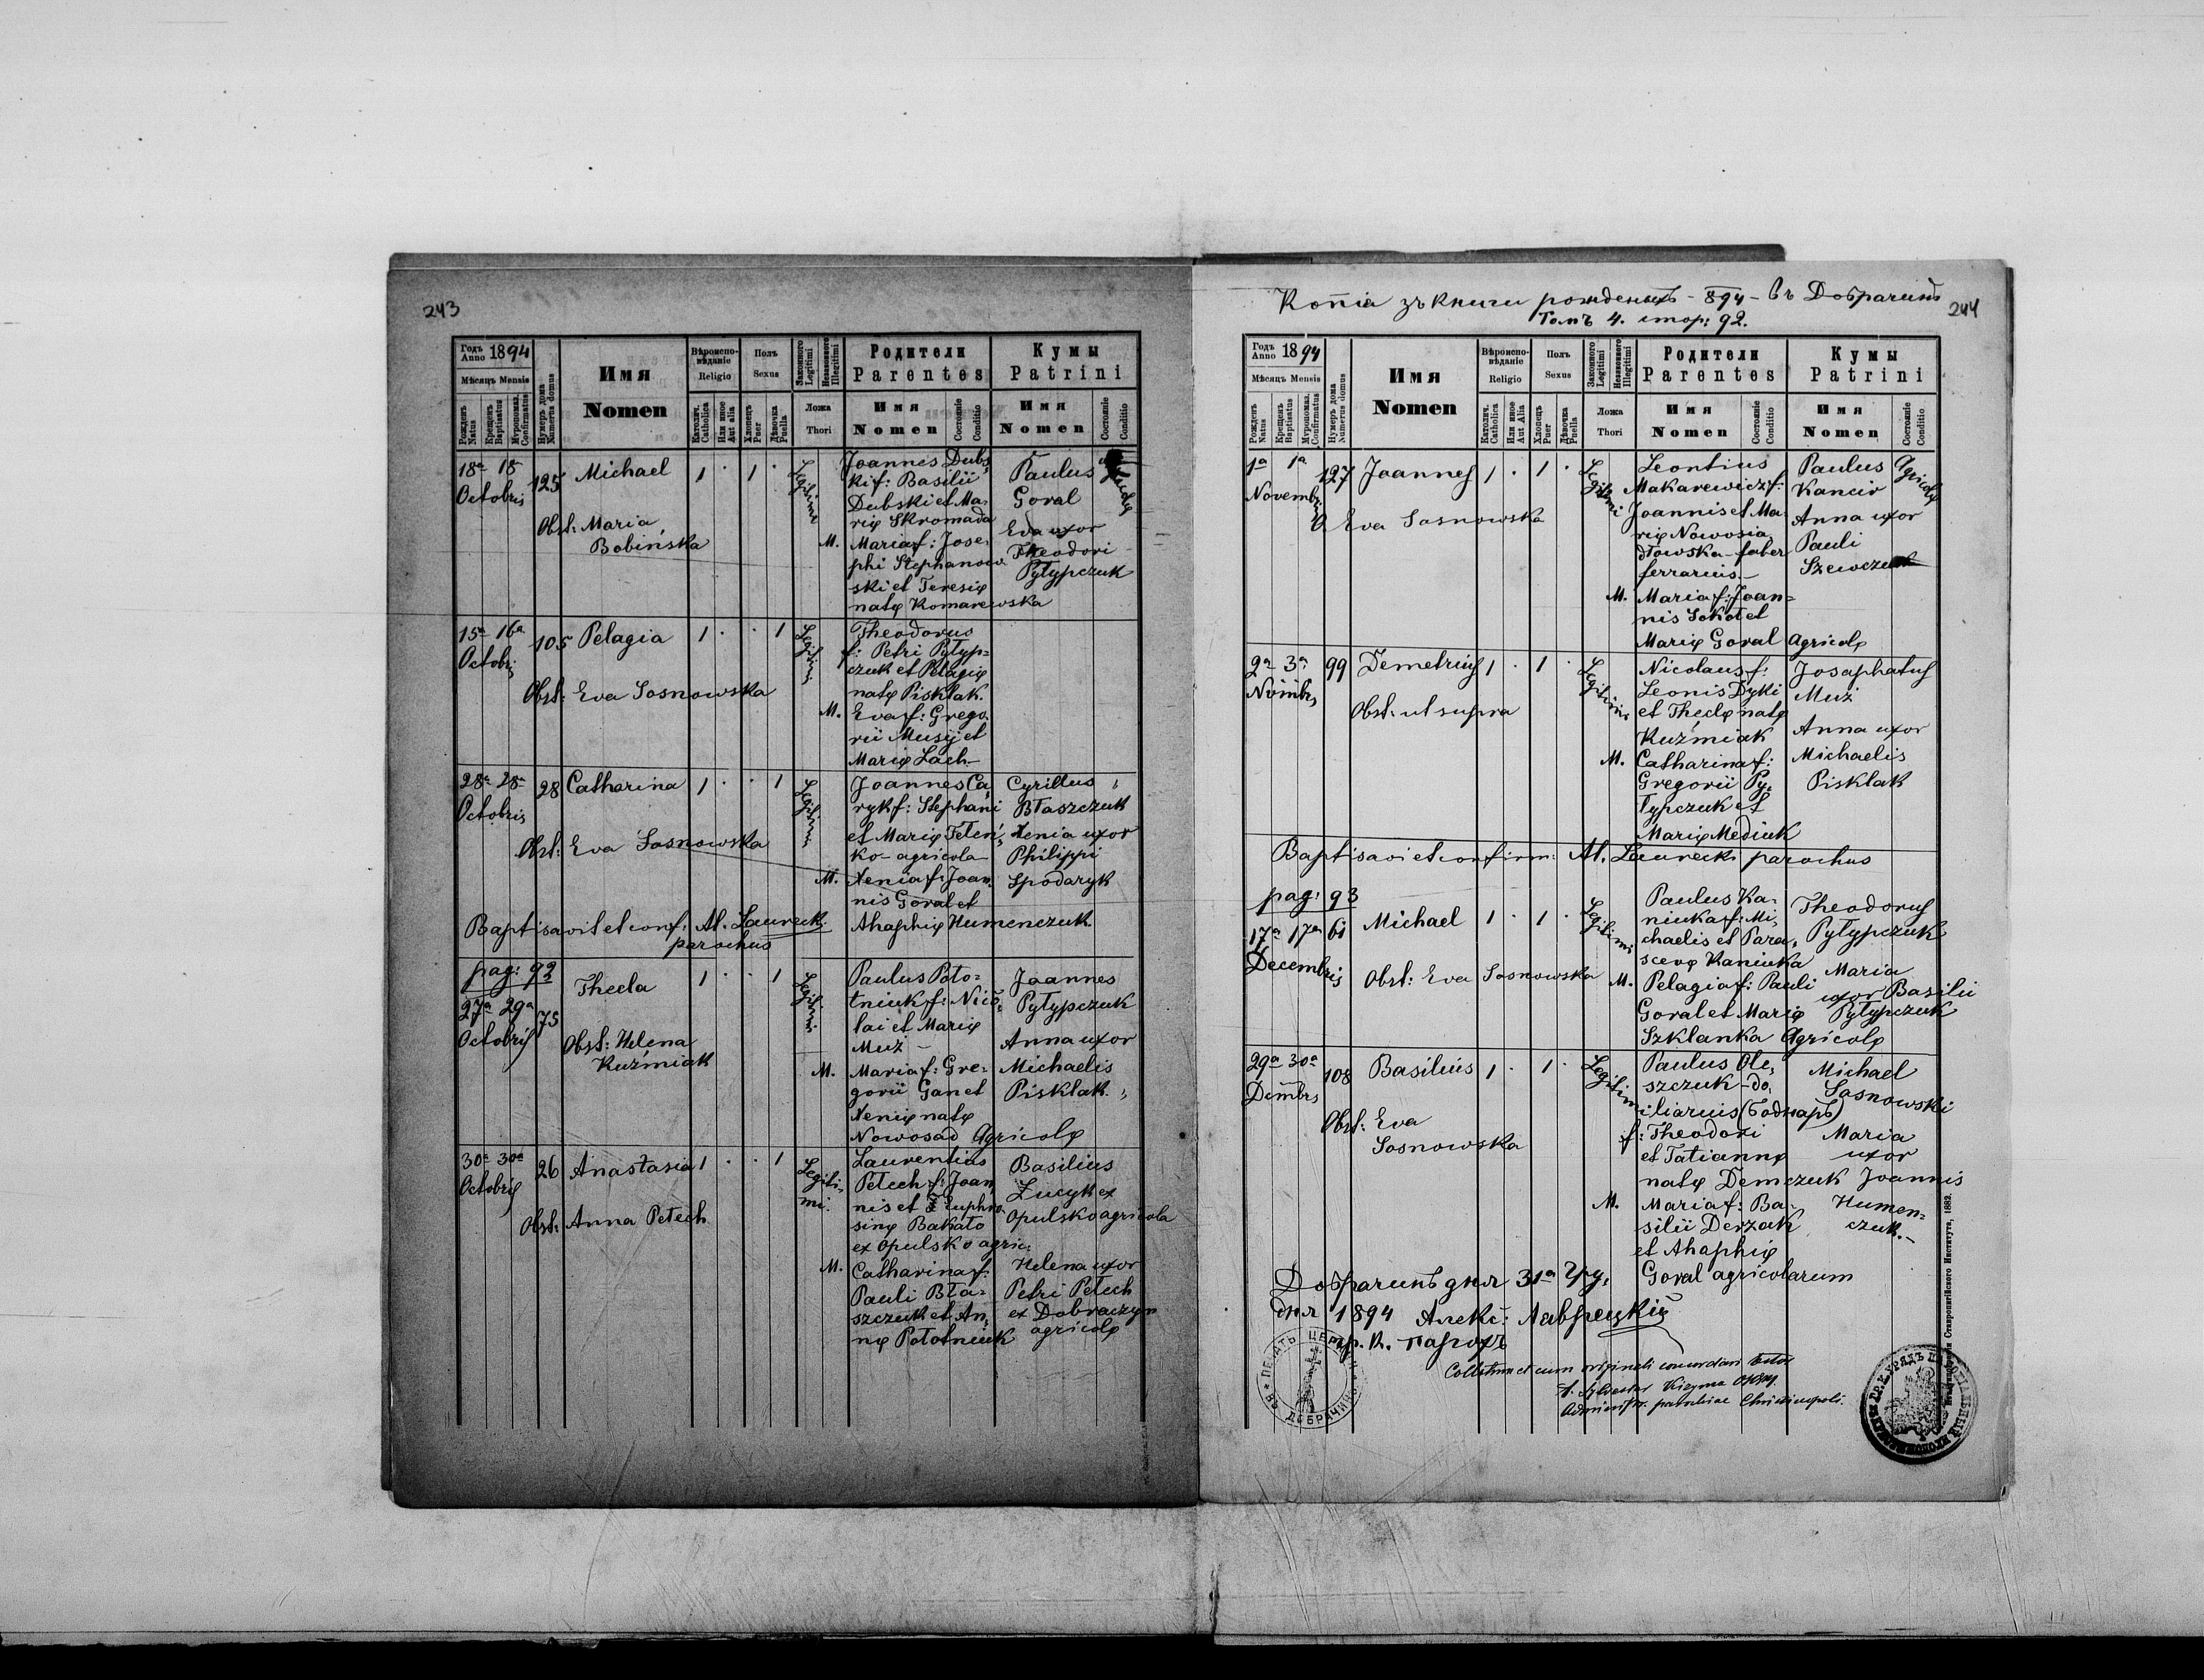 243
Годъ Anno 1894
Мѣсяцъ Mensis
Рожденъ Natus
Крещенъ Baptisatus
Мѵропомаз. Confirmatus
Нумеръ дома Numerus domus
Имя
Nomen
Вѣроиспо-
вѣданіе
Religio
Католич. Catholica
Или иное Aut alia
Полъ
Sexus
Хлопецъ Puer
Дѣвочка Puella
Законного Legitimi
Незаконного Illegitimi
Ложа
Thori
Родители
Parentes
Имя
Nomen
Состояніе
Conditio
Кумы
Patrini
Имя
Nomen
Состояніе
Conditio
18a 18a
Octobris
125
Michael
1 . 1 .
Legitimi
Obst: Maria
Bobińska
Joannes Dubs-
ki f: Basilii
Dubski et Ma-
rię Skromada
M. Maria f: Jose-
phi Stephanow-
ski et Teresię
natę Komarewska
Paulus
Goral
Eva uxor
Theodori
Pyłypczuk
15a 16a
Octobris
105
Pelagia
1 . . 1
Legitimi
Obst: Eva Sosnowska
Theodorus
f: Petri Pyłyp-
czuk et Pelagię
natę Pisklak.
M. Eva f: Grego-
rii Musij et
Marię Lach-
28a 28a
Octobris
28
Catharina
1 . . 1
Legitimi
Obst: Eva Sosnowska
Joannes Ca-
ryk f: Stephani
et Marię Feten-
ko- agricola
M. Xenia f: Joan-
nis Goral et
Ahaphię Humenczuk.
Cyrillus
Błaszczuk
Xenia uxor
Philippi
Spodaryk
Baptisavit et conf: Al. Laurecki
parochus
pag: 92
27a 29a
Octobris
75
Thecla
1 . . 1
Legitimi
Obst: Helena
Kuźmiak
Paulus Pło-
tniuk f: Nico-
lai et Marię
Muż -
M. Maria f: Gre-
gorii Gan et
Xenię natę
Nowosad Agricolę
Joannes
Pyłypczuk
Anna uxor
Michaelis
Pisklak.
30a 30a
Octobris
26
Anastasia
1 . . 1
Legiti-
mi.
Obst: Anna Petech
Laurentius
Petech f: Joan-
nis et Euphro-
sinę Bakato
ex Opulsko agric:
M. Catharina f:
Pauli Bła-
szczuk et An-
nę Pototniuk
Basilius
Łucyk ex
Opulsko agricola
Helena uxor
Petri Petech
ex Dobraczyn
agricolę
Копія зъ книги рожденыхъ - 894 - въ Добрачинѣ
Томъ 4. стор: 92.
244
Годъ Anno 1894
Мѣсяцъ Mensis
Рожденъ Natus
Крещенъ Baptisatus
Мѵропомаз. Confirmatus
Нумеръ дома Numerus domus
Имя
Nomen
Вѣроиспо-
вѣданіе
Religio
Католич. Catholica
Или иное Aut Alia
Полъ
Sexus
Хлопецъ Puer
Дѣвочка Puella
Законного Legitimi
Незаконного Illegitimi
Ложа
Thori
Родители
Parentes
Имя
Nomen
Состояніе
Conditio
Кумы
Patrini
Имя
Nomen
Состояніе
Conditio
1a 1a
Novembris
127
Joannes
1 . 1 .
Legitimi
O. Eva Sosnowska
Leontius
Makarewicz f:
Joannis et Ma-
rię Nowosia-
dłowska - faber
ferrarius.-
M. Maria f: Joan=
nis Sokoł et
Marię Goral Agricolę
Paulus
Kancir
Anna uxor
Pauli
Szewczuk
Agricolę
2a 3a
Novmbrs
99
Demetrius
1 . 1 .
Legitimi
Obst: ut supra
Nicolaus f:
Leonis Dyki
et Theclę natę
Kuźmiak
M. Catharina f:
Gregorii Py-
łypczuk et
Marię Mediuk
Josaphatus
Muż
Anna uxor
Michaelis
Pisklak
Baptisavi et confirm: Al. Laurecki parochus
pag: 93
17a 17a
Decembris
61
Michael
1 . 1 .
Legitimi
Obst: Eva Sosnowska
Paulus Ka-
niuka f: Mi-
chaelis et Para-
scevę Kaniuka
M. Pelagia f: Pauli
Goral et Marię
Szklanka Agricolę
Theodorus
Pyłypczuk
Maria
uxor Basilii
Pyłypczuk
29a 30a
Dcmbrs
108
Basilius
1 . 1 .
Legitimi
Obst: Eva
Sosnowska
Paulus Ole-
szczuk - do-
liarius (боднарь)
f: Theodori
et Tatiannę
natę Demczuk
M. Maria f: Ba-
silii Derżak
et Ahaphię
Goral agricolarum
Michael
Sosnowski
Maria
uxor
Joannis
Humen-
czuk.-
Добрачинъ дня 31а Гру-
дня 1894 Алекс: Лаврецкій
гр. к. парохъ
Collatum et cum originali concordans testor
Administr. parochiae Christinopoli.
ПЕЧАТЬ ЦЕРКВИ
ВЪ ДОБРАЧИНѢ
Ставропигійского Института, 1883.